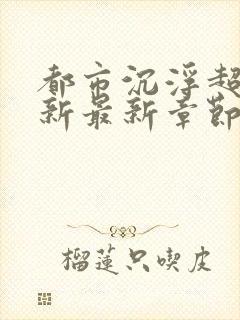 都市沉浮超
新最新章節
榴蓮只喫皮